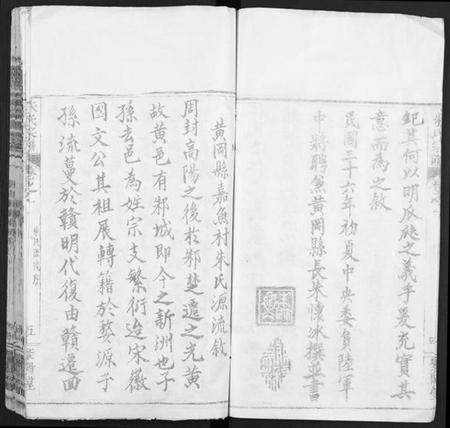 紀其何以明飲之義乎爰充實其
意而為之敘
民國三十六年初夏中央委員陸軍
中將聘兼黃岡縣長朱懷冰撰並書
黃岡縣嘉魚村朱氏源流敘
周封高陽之後於邾楚遷之先黃
故黃邑有邾城即今之新洲也子
孫去邑為姓宗支繁衍迨宋徽
國文公其祖展轉籍於婺源子
孫流蔓於贛明代復由贛遷回
朱氏源流序
五